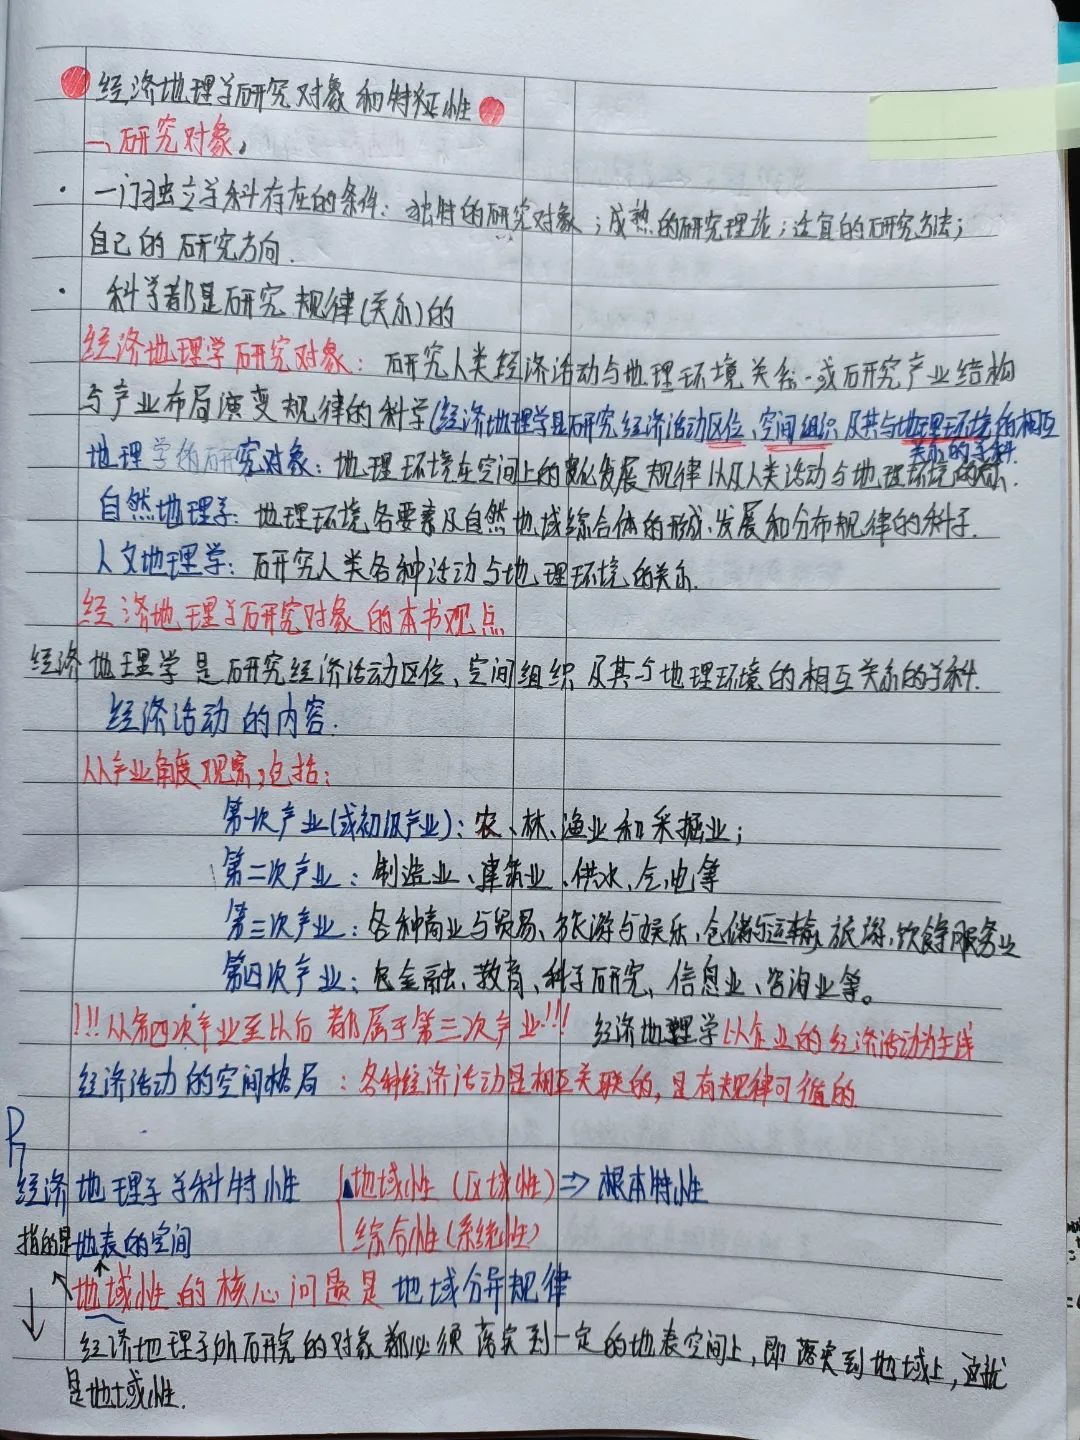 经济地理学研究对象和特征性
一、研究对象,
· 一门独立学科存在的条件:独特的研究对象;成熟的研究理论;适宜的研究方法;
自己的研究方向.
· 科学都是研究规律(关系)的
经济地理学研究对象:研究人类经济活动与地理环境关系.或研究产业结构
与产业布局演变规律的科学(经济地理学是研究经济活动区位、空间组织及其与地理环境的相互
关系的学科.
地理学的研究对象:地理环境在空间上的变化发展规律以及人类活动与地理环境的关系.
自然地理学:地理环境各要素及自然地域综合体的形成、发展和分布规律的科学.
人文地理学:研究人类各种活动与地理环境的关系.
经济地理学研究对象的本书观点
经济地理学是研究经济活动区位、空间组织及其与地理环境的相互关系的学科.
经济活动的内容.
从产业角度观察,包括:
第一次产业(或初级产业):农、林、渔业和采掘业;
第二次产业:制造业、建筑业、供水、气、电等
第三次产业:各种商业与贸易、旅游与娱乐、仓储与运输、旅游、饮食等服务业
第四次产业:包金融、教育、科学研究、信息业、咨询业等。
!!!从第四次产业至以后都属于第三次产业!!! 经济地理学以企业的经济活动为主线
经济活动的空间格局:各种经济活动是相互关联的,是有规律可循的
经济地理学学科特性 地域性(区域性)⇒根本特性
综合性(系统性)
指的是地表的空间
地域性的核心问题是地域分异规律
经济地理学所研究的对象都必须落实到一定的地表空间上,即落实到地域上,这就
是地域性.